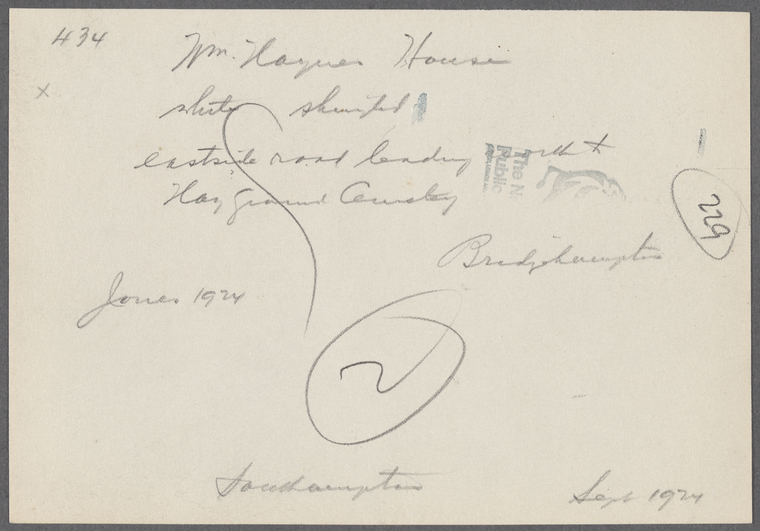 434
Wm. Haynes House
X
white shingled
eastside road leading north to
Hay ground Cemetery
The N
Public
229
Bridgehampton
Jones 1924
2
Southampton
Sept 1924